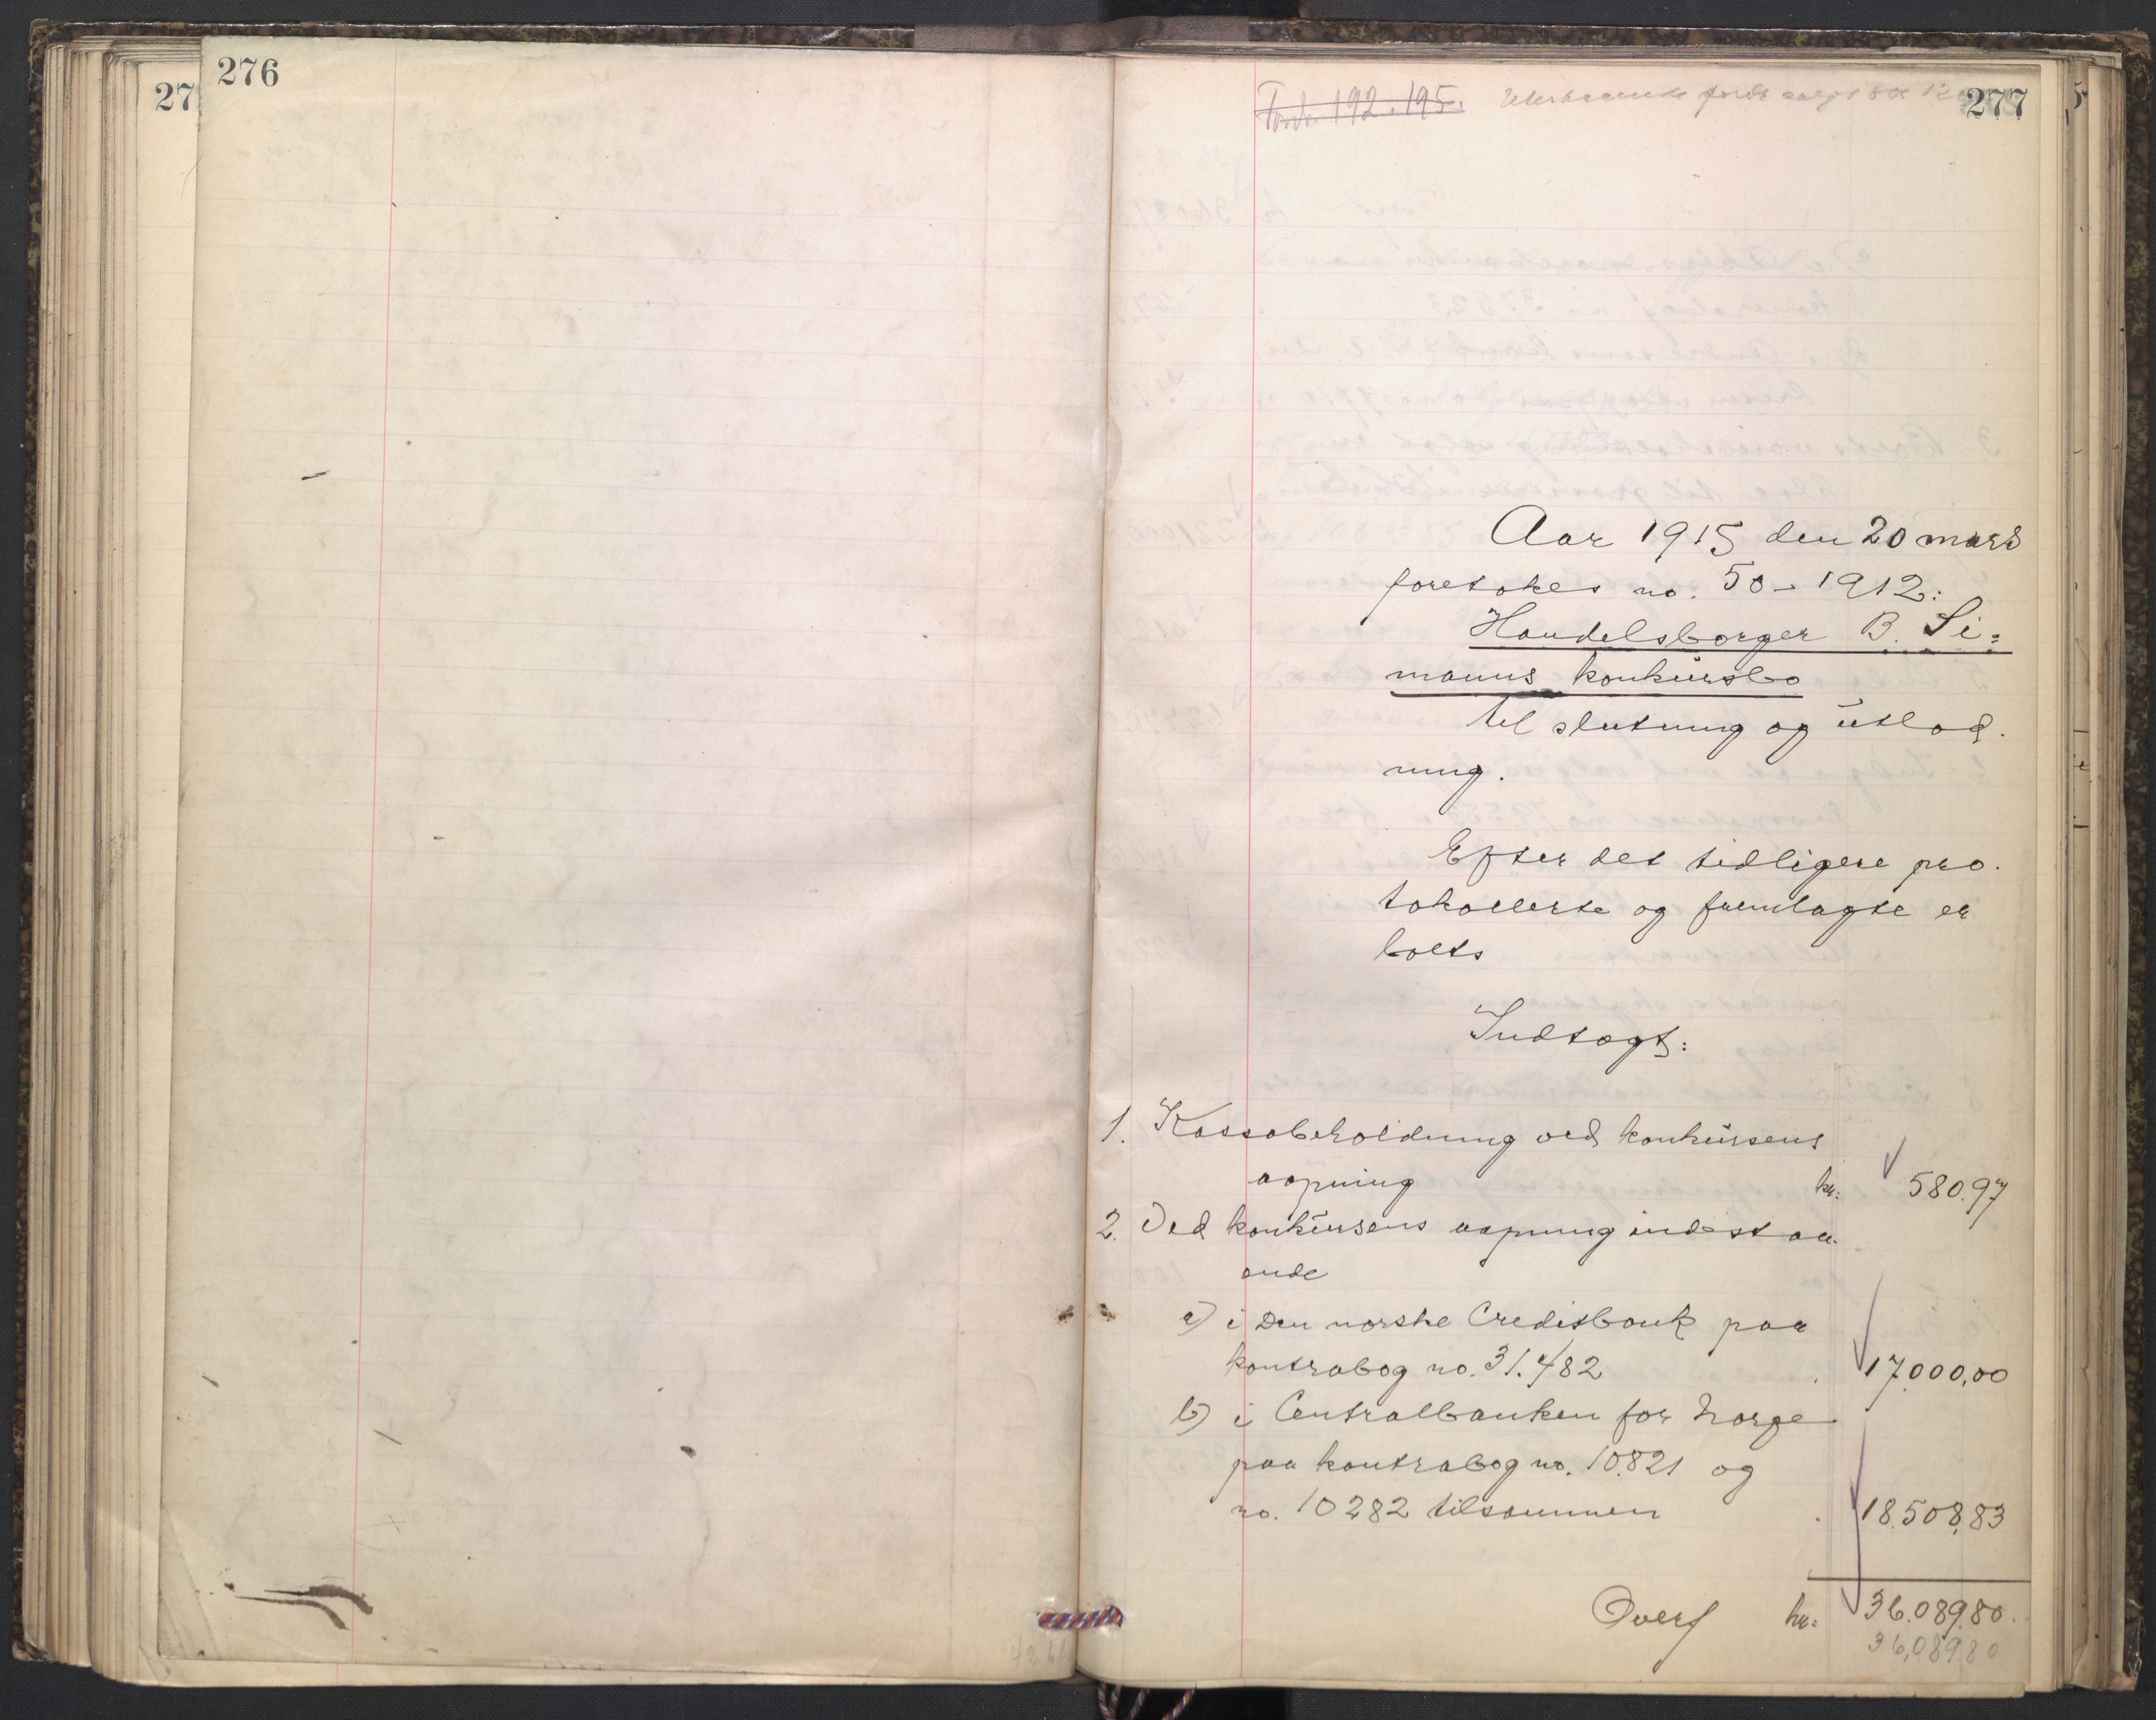 276
27
Ford. 192.195.
277
Aar 1915 den 20 mars
foretokes no. 50 - 1912:
Handelsborger B. Si=
manns konkursbo
til slutning og utlod.
ning.
Efter det tidligere pro.
tokollerte og fremlagte er
boets
Indtægt:
1. Kassabeholdning ved konkursens
aapning kr: 580.97
2. Ved konkursens aapning indestaa.
ende
a) i Den norske Creditbank paa
kontrabog no. 31.482 . 17.000,00
b) i Centralbanken for Norge
paa kontrabog no. 10.821 og
no. 10282 tilsammen . 18.508,83
Overf kr: 36.089.80.
36,089.80